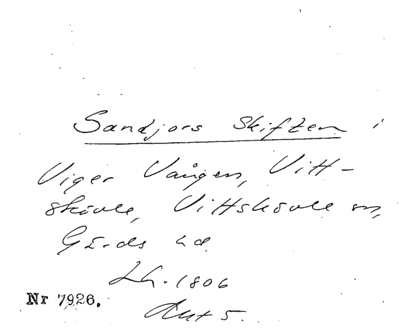 Sandjors Skiften i
Viger Vången, Vitt-
skövle, Vittskövle sn,
Gärds hd
Lh. 1806
Akt 5.
Nr 7926.